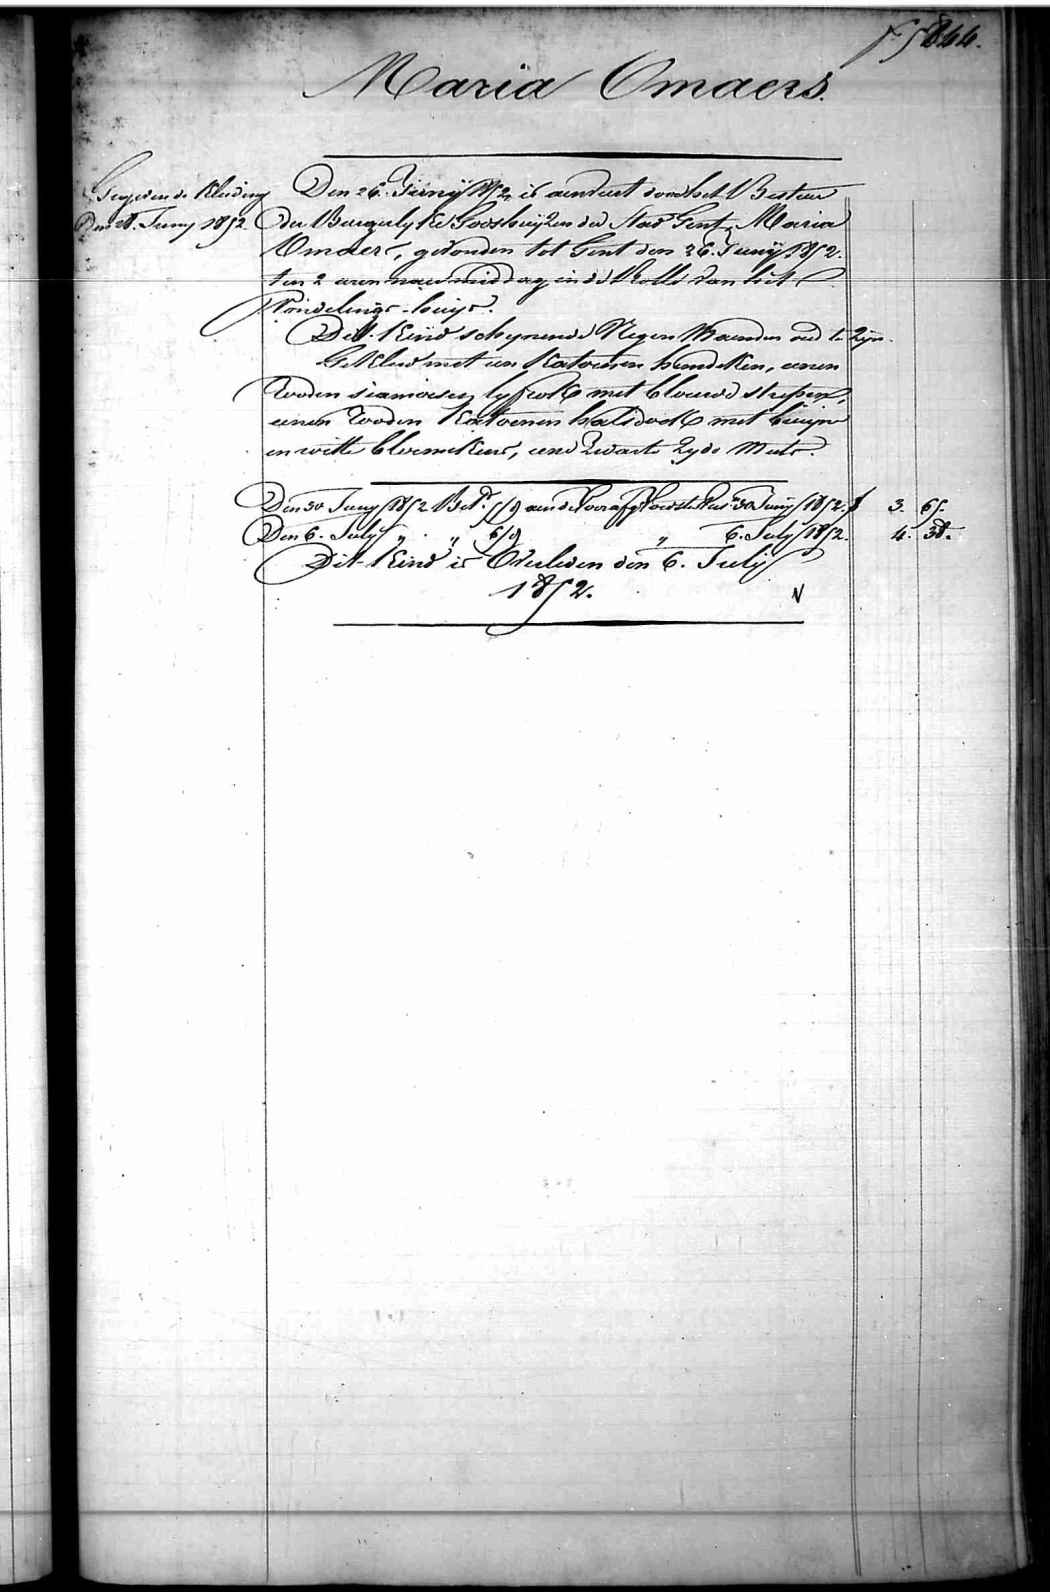 Maria Omaers.
Gegevende Kleding
Den 28. Juny 1852.
Den 26. Junij 1852, is aenveert door het Bestuer
der Burgerlyke Godshuijzen der Stad Gent, Maria
Omaers, gevonden tot Gent den 26. Junij 1852.
ten 2 uren naermiddag in de Rolle van het
Vondelings-huijs.
Dit Kind schynende Negen Maenden oud te Zijn.
Gekleed met een Katoenen hemdeken, eenen
Rooden siamoisen lyfrok met blauwe strepen,
eenen Rooden Katoenen halsdoek met bruijne
en witte bloemekens, eene Zwarte Zyde Muts.
Den 30 Juny 1852 Bet. 5/9 aen de 30 Junij 1852. f 3. 65.
Den 6. July " " 6/9 " 6. July 1852. 4. 38.
Dit Kind is Overleden den 6. July
1852.